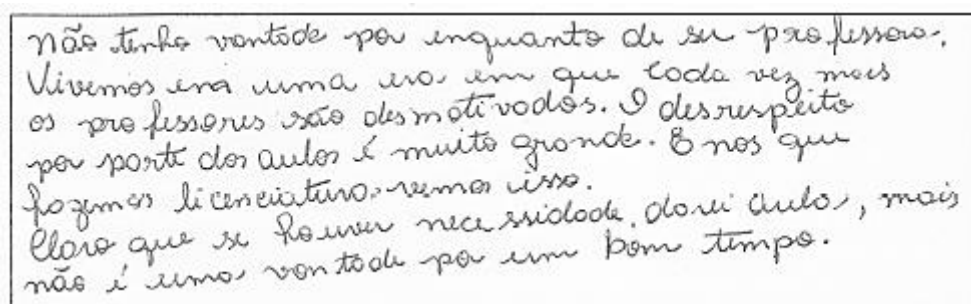 Não tenho vontade por enquanto de ser professora.
Vivemos em uma era em que cada vez mais
os professores são desmotivados. O desrespeito
por parte dos aulos é muito grande. E nos que
fazemos licenciatura vemos isso.
Claro que se houver necessidade, darei aula, mais
não é uma vontade por um bom tempo.